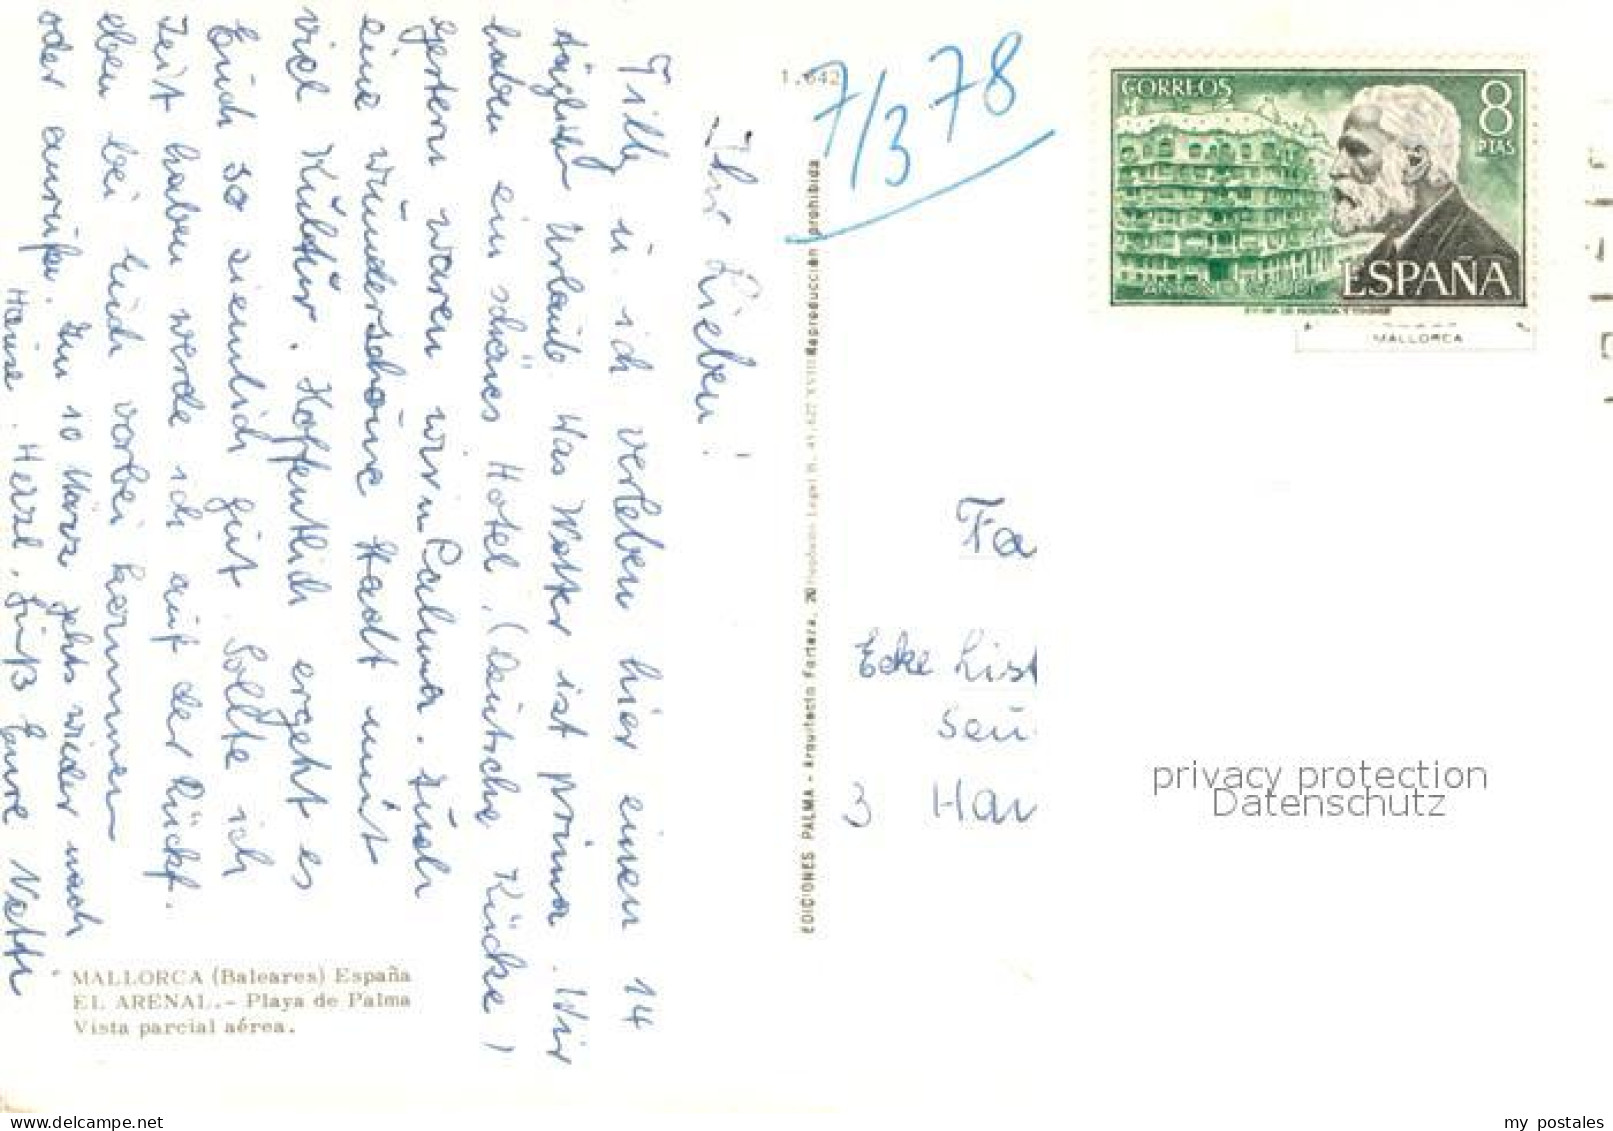 Ihr Lieben!
Tilly u. ich verleben hier einen 14
täglich Urlaub. Das Wetter ist prima. Wir
haben ein schönes Hotel, (Deutsche Küche)
gestern waren wir in Palma. Auch
eine wunderschöne Stadt mit
viel Kultur. Hoffentlich ergeht es
Euch so ziemlich gut. Sollte ich
Zeit haben werde ich auf der Rückf.
eben bei Euch vorbei kommen
oder anrufen. Am 10 März gehts wieder nach
Hause. Herzl. Gruß Eure
MALLORCA (Baleares) España
EL ARENAL.- Playa de Palma
Vista parcial aérea.
EDICIONES PALMA - Arquitecto Forteza, Reproducción prohibida
1.642
7/3 78
CORREOS
8
PTAS
ANTONIO GAUDI
ESPAÑA
MALLORCA
Fa
Ecke List
3 Han
privacy protection
Datenschutz
www.delcampe.net
my_postales